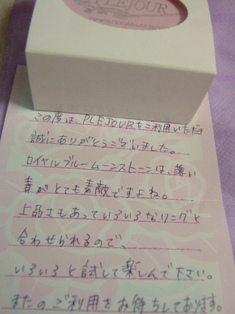 PLEJOUR
この度は、PLEJOURをご利用いただき
誠にありがとうございました。
ロイヤルブルームーンストーンは、薄い
青がとても素敵ですよね。
上品さもあっていろいろなリングと
合わせられるので、
いろいろと試して楽しんで下さい。
またのご利用をお待ちしております。